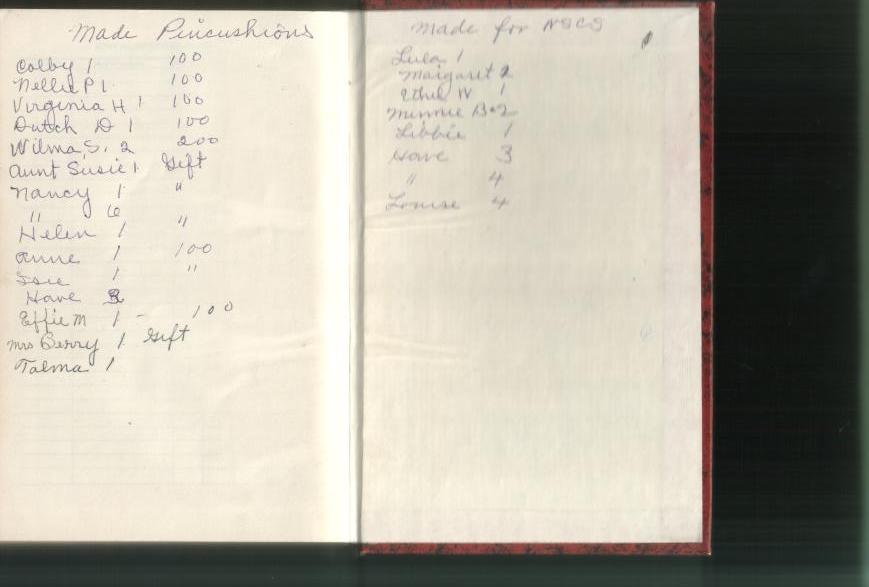 Made Pincushions
Colby 1 100
Nellie P 1 100
Virginia H 1 100
Dutch D 1 100
Wilma S. 2 200
Aunt Susie 1 Gift
Nancy 1 "
" 6
Helen 1 "
Anne 1 100
Issie 1 "
Have 3
Effie M 1 - 100
Mrs Berry 1 Gift
Talma 1
Made for WSCS
Lula 1
Margaret 2
Ethel W 1
Minnie B 2
Libbie 1
Have 3
" 4
Louise 4